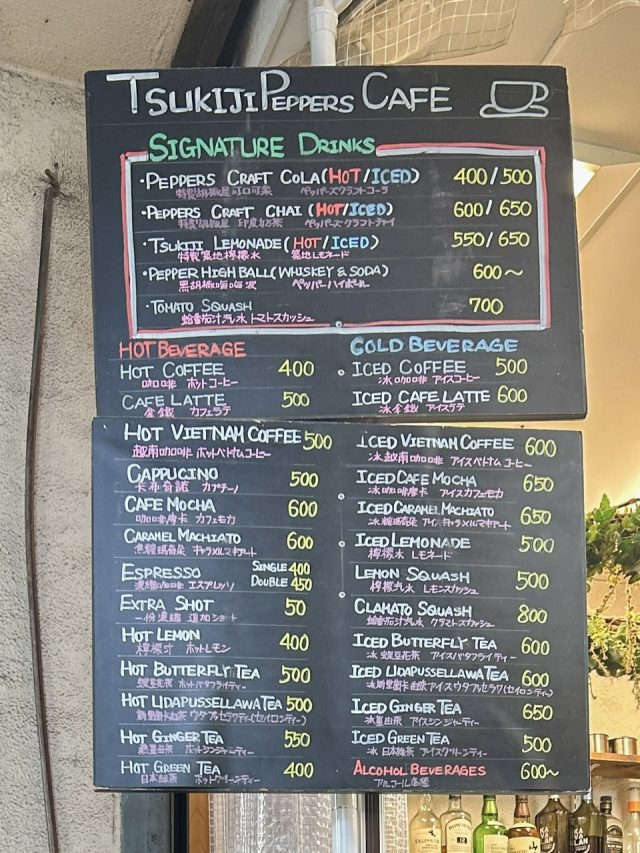 TSUKIJI PEPPERS CAFE
SIGNATURE DRINKS
・PEPPERS CRAFT COLA (HOT/ICED) 400/500
特製胡椒風可口可楽 ペッパーズクラフトコーラ
・PEPPERS CRAFT CHAI (HOT/ICED) 600/650
ペッパーズクラフトチャイ
・TSUKIJI LEMONADE (HOT/ICED) 550/650
特製築地檸檬水 築地レモネード
・PEPPER HIGH BALL (WHISKEY & SODA) 600〜
黒胡椒嗨嗨波 ペッパーハイボール
・TOMATO SQUASH 700
蛤番茄汁汽水 トマトスカッシュ
HOT BEVERAGE
HOT COFFEE 400
咖啡 ホットコーヒー
CAFE LATTE 500
拿鐵 カフェラテ
HOT VIETNAM COFFEE 500
越南咖啡 ホットベトナムコーヒー
CAPPUCINO 500
卡布奇諾 カプチーノ
CAFE MOCHA 600
咖啡摩卡 カフェモカ
CARAMEL MACHIATO 600
焦糖瑪奇朵 キャラメルマキアート
ESPRESSO SINGLE 400
DOUBLE 450
濃縮咖啡 エスプレッソ
EXTRA SHOT 50
一份濃縮 追加ショット
HOT LEMON 400
檸檬汁 ホットレモン
HOT BUTTERFLY TEA 500
蝶豆花茶 ホットバタフライティー
HOT UDAPUSSELLAWA TEA 500
ウダプセラワティー(セイロンティー)
HOT GINGER TEA 550
ホットジンジャーティー
HOT GREEN TEA 400
日本緑茶 ホットグリーンティー
COLD BEVERAGE
ICED COFFEE 500
冰咖啡 アイスコーヒー
ICED CAFE LATTE 600
冰拿鐵 アイスラテ
ICED VIETNAM COFFEE 600
冰越南咖啡 アイスベトナムコーヒー
ICED CAFE MOCHA 650
冰咖啡摩卡 アイスカフェモカ
ICED CARAMEL MACHIATO 650
冰焦糖瑪奇朵 アイスキャラメルマキアート
ICED LEMONADE 500
檸檬水 レモネード
LEMON SQUASH 500
檸檬汽水 レモンスカッシュ
CLAMATO SQUASH 800
蛤番茄汁汽水 クラマトスカッシュ
ICED BUTTERFLY TEA 600
冰蝶豆花茶 アイスバタフライティー
ICED UDAPUSSELLAWA TEA 600
アイスウダプセラワ(セイロンティー)
ICED GINGER TEA 650
アイスジンジャーティー
ICED GREEN TEA 500
冰日本緑茶 アイスグリーンティー
ALCOHOL BEVERAGES 600〜
アルコール各種